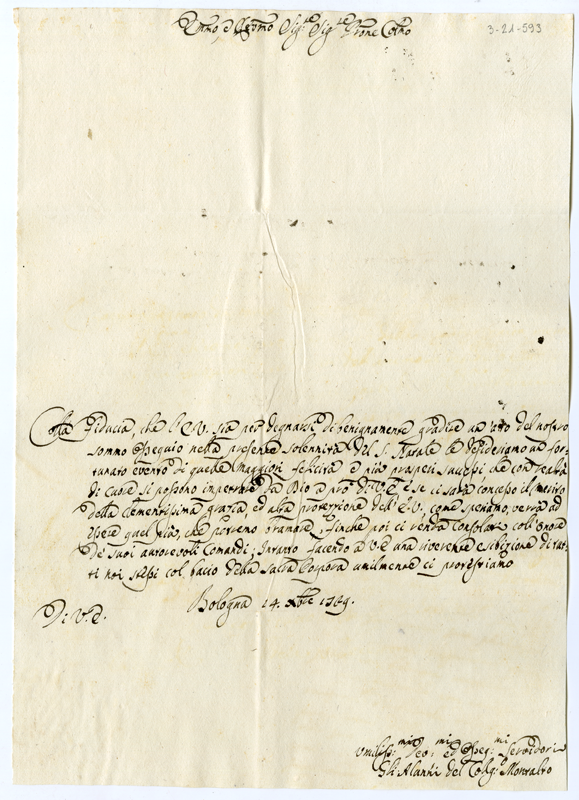 3-21-593
Emmo e Rmo Sigre Sigre Prone Colmo
Colla fiducia, che l'E.V. sia per degnarsi di benignamente gradire un atto del nostro
sommo ossequio nella presente solennità del S. Natale le desideriamo un for-
tunato evento di quelle maggiori felicità e più prosperi successi che con realtà
di Cuore si possono impetrare da Dio a prò di V.E. e se ci sarà concesso il merito
della clementissima grazia, ed alta protezione dell'E.V., come speriamo, verrà ad
essere quel più, che potremo bramare, finche poi ci renda consolati coll'onore
de' suoi autorevoli Comandi; Intanto facendo a V.E. una riverente esibizione di tut-
ti noi stessi col bacio della Sacra Porpora umilmente ci protestiamo
Di V.E.
Bologna 14. Xbre 1769.
Umilissmi Devmi ed Osseqmi Servidori
Gli Alunni del Collgo Montalto